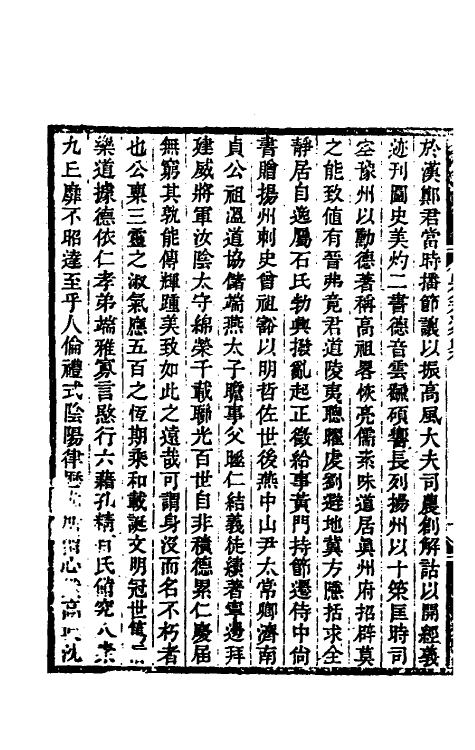 於漢鄭君當時播節讓以振高風大夫司農創解詁以開經義
迹刊圖史美灼二書德音雲飜碩響長列揚州以十策匡時司
空豫州以勳德著稱高祖畧恢亮儒素味道居眞州府招辟莫
之能致値有晉弗竟君道陵夷聰曜虔劉避地冀方隱括求全
靜居自逸屬石氏勃興撥亂起正徵給事黃門持節遷侍中尙
書贈揚州刺史曾祖豁以明哲佐世後燕中山尹太常卿濟南
貞公祖溫道協儲端燕太子瞻事父曄仁結義徒績著寧邊拜
建威將軍汝陰太守綿榮千載聯光百世自非積德累仁慶屆
無窮其孰能傳輝踵美致如此之遠哉可謂身沒而名不朽者
也公稟三靈之淑氣應五百之恆期乘和載誕文明冠世篤
樂道據德依仁孝弟端雅寡言愍行六藉孔精百氏備究八素
九丘靡不昭達至乎人倫禮式陰陽律曆 心 高 沈